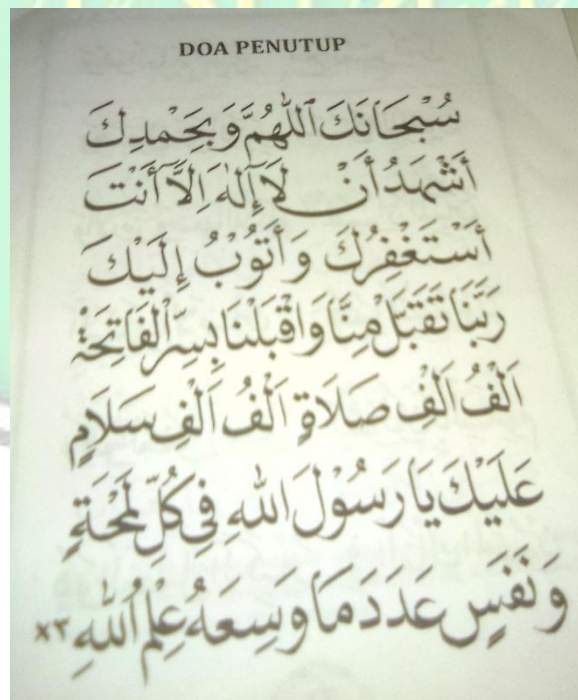 DOA PENUTUP
سُبْحَانَكَ اللّٰهُمَّ وَبِحَمْدِكَ
أَشْهَدُ أَنْ لَا إِلٰهَ اِلَّا أَنْتَ
أَسْتَغْفِرُكَ وَأَتُوْبُ إِلَيْكَ
رَبَّنَا تَقَبَّلْ مِنَّا وَاقْبَلْنَا بِسِرِّ الْفَاتِحَةْ
اَلْفُ اَلْفِ صَلَاةٍ اَلْفُ اَلْفِ سَلَامٍ
عَلَيْكَ يَا رَسُوْلَ اللهِ فِي كُلِّ لَمْحَةٍ
وَنَفَسٍ عَدَدَ مَا وَسِعَهُ عِلْمُ اللهِ ×٣